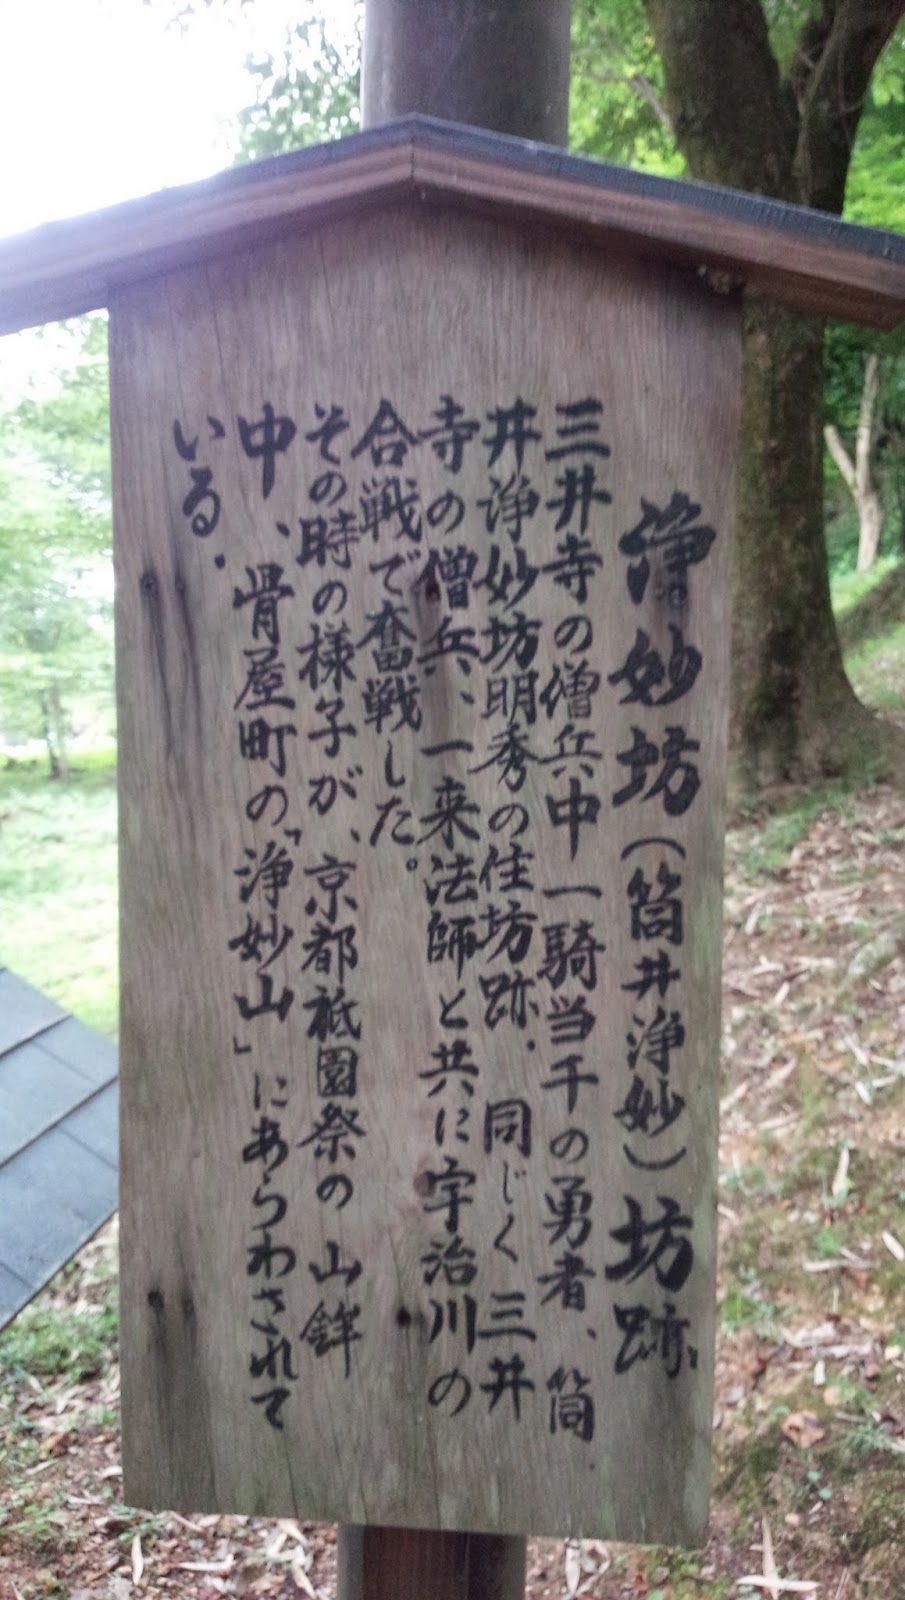 浄妙坊(筒井浄妙)坊跡
三井寺の僧兵中一騎当千の勇者、筒
井浄妙坊明秀の住坊跡.同じく三井
寺の僧兵、一来法師と共に宇治川の
合戦で奮戦した。
その時の様子が、京都祇園祭の山鉾
中、骨屋町の「浄妙山」にあらわされて
いる.